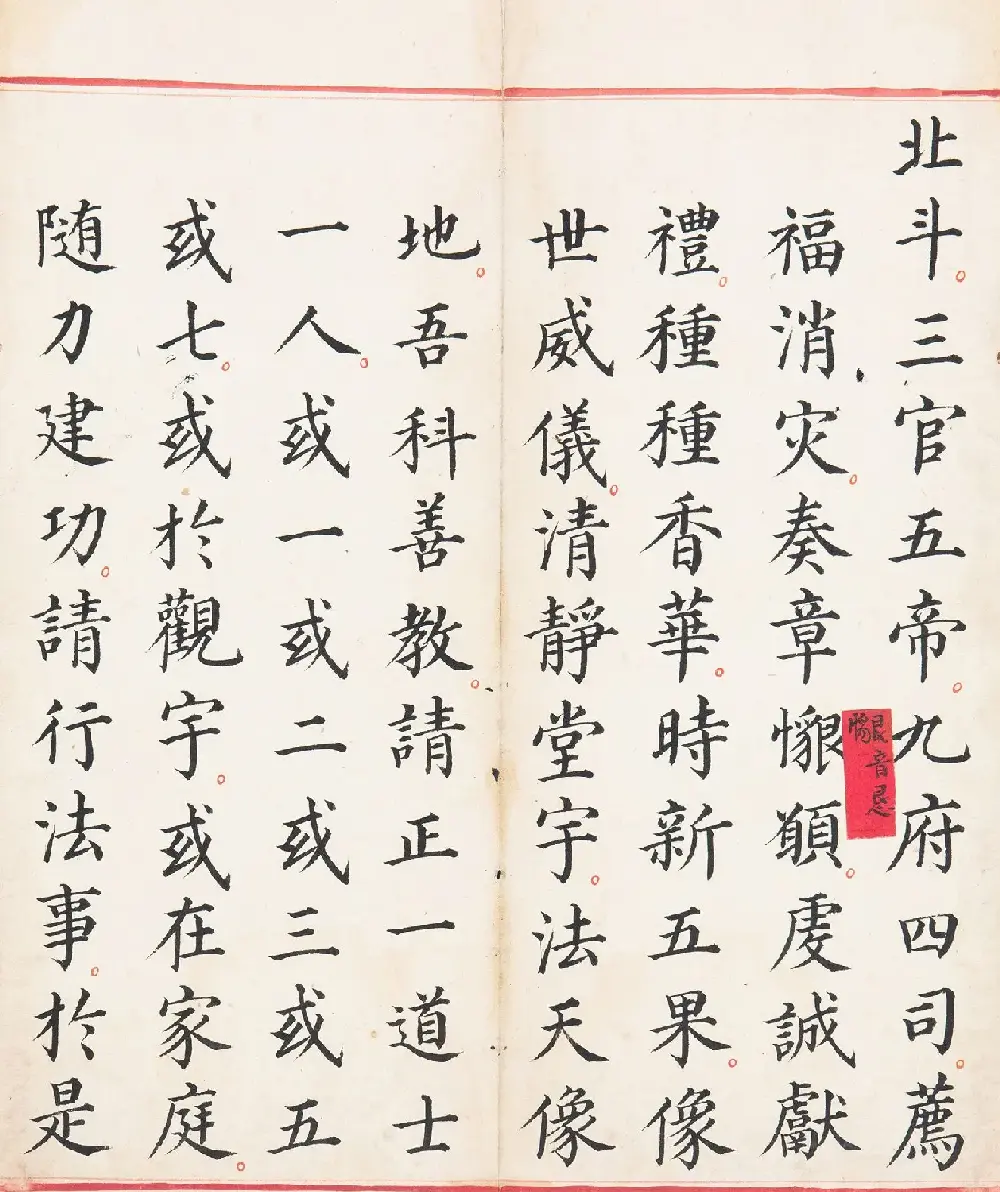 北斗。三官五帝。九府四司。薦
懇音恳
福消灾。奏章懇願。虔誠獻
禮。種種香華。時新五果。像
世威儀。清靜堂宇。法天像
地。吾科善教。請正一道士
一人。或一或二或三或五
或七。或於觀宇。或在家庭。
随力建功。請行法事。於是